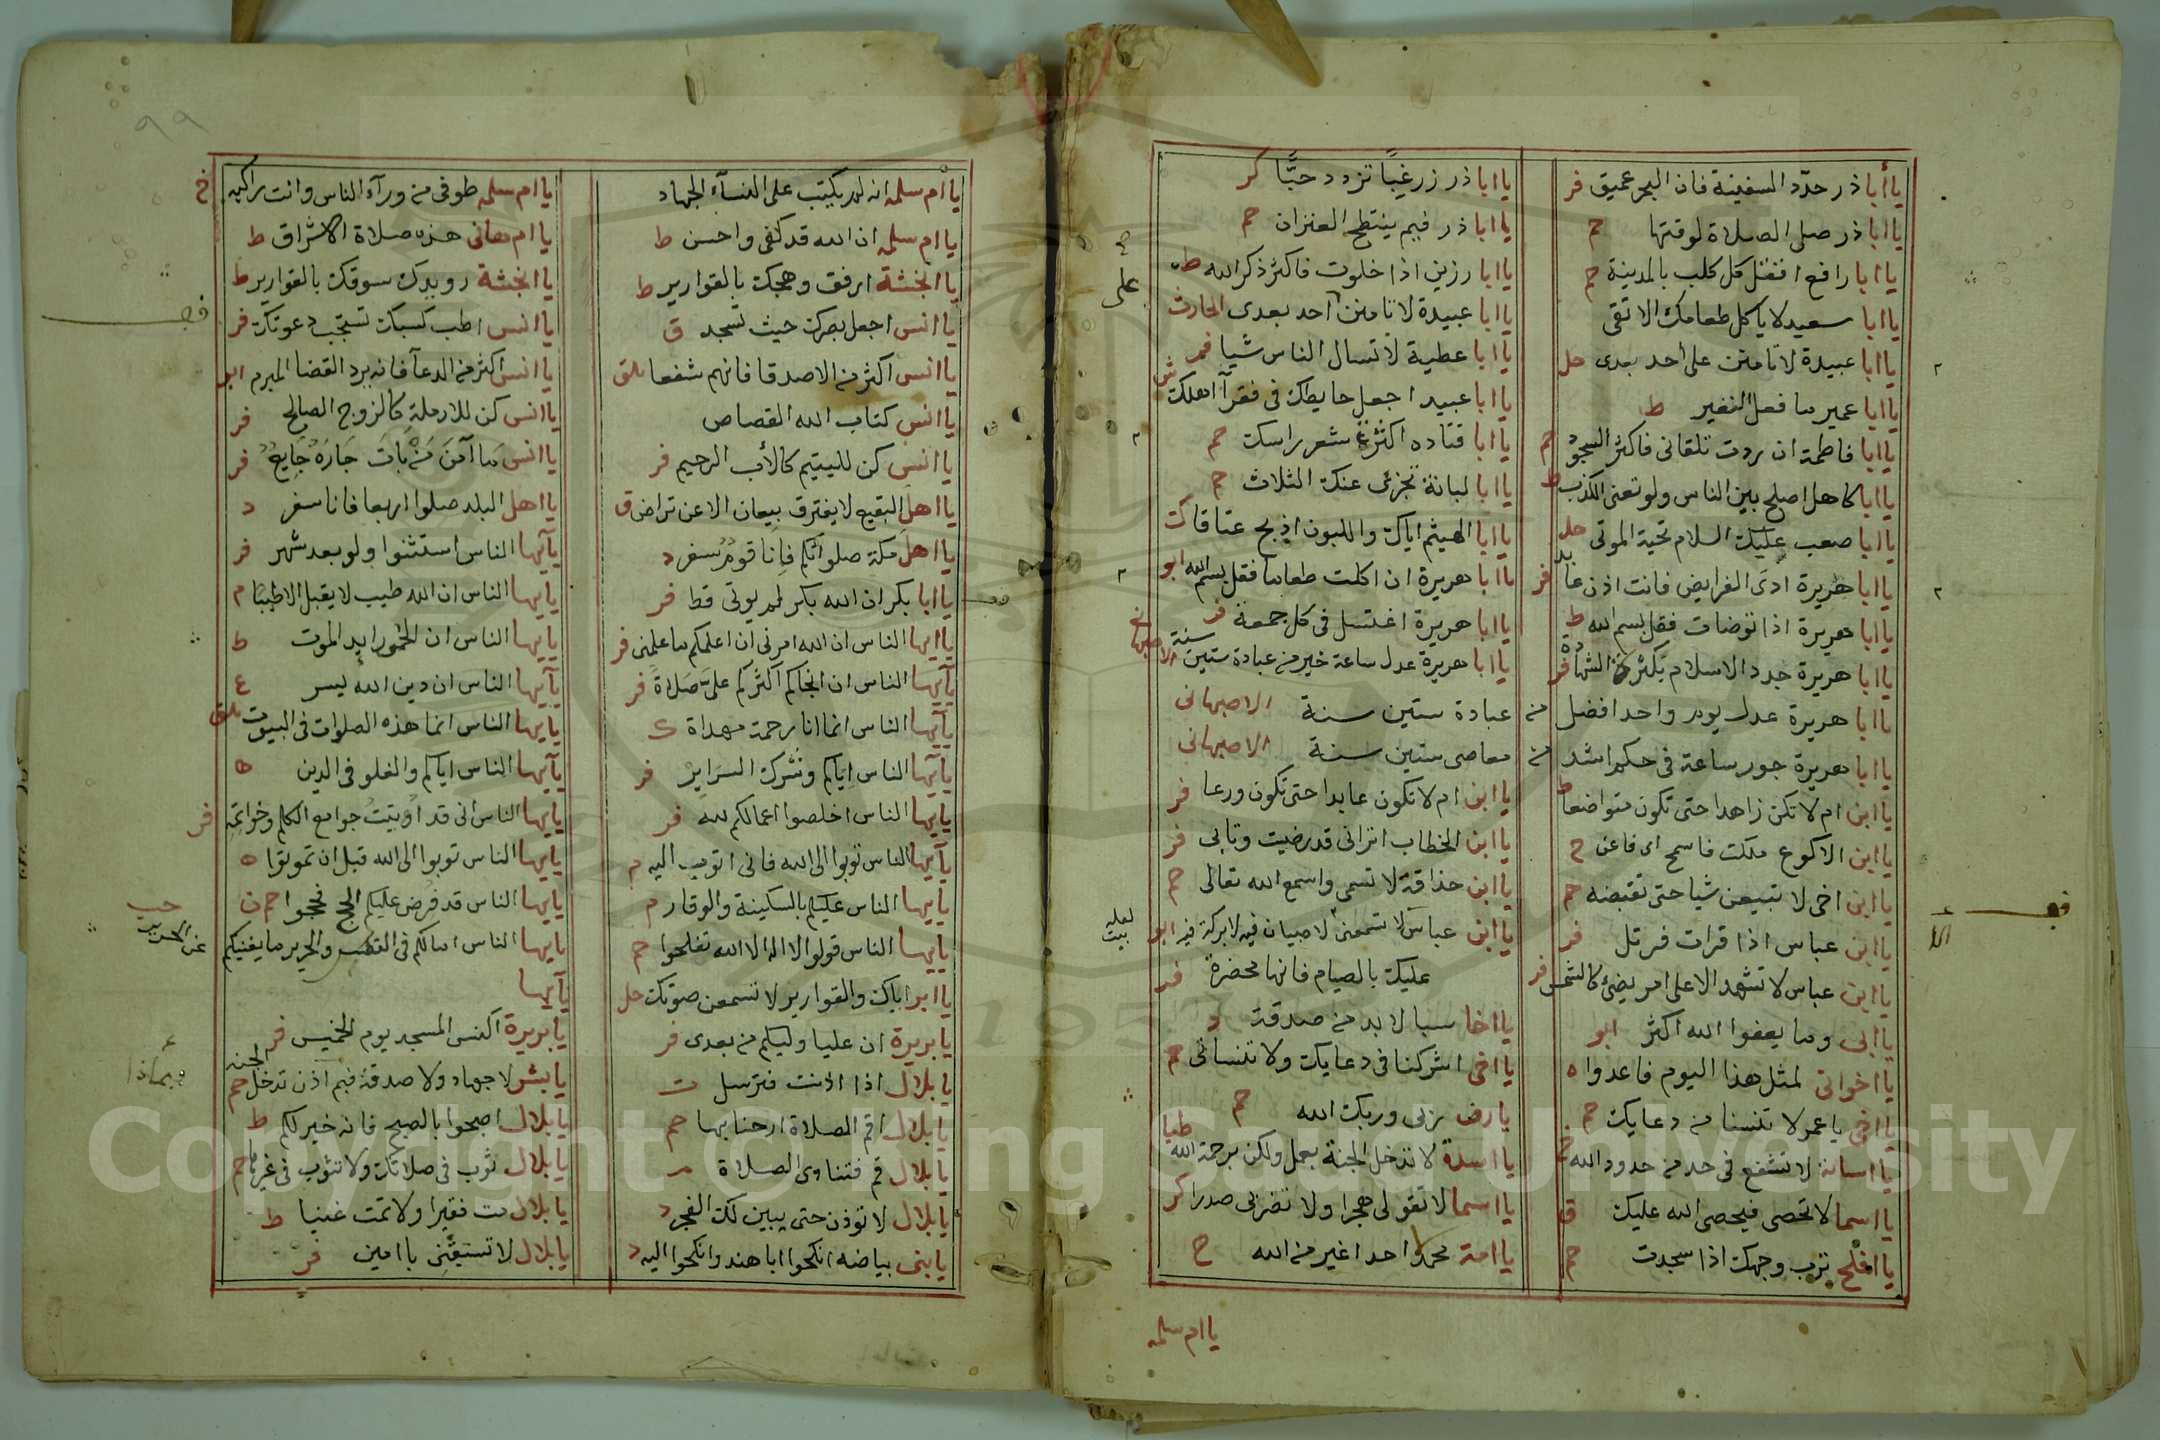 يا أبا ذر جدد السفينة فان البحر عميق فر
يا ابا ذر صلى الصلاة لوقتها م
يا ابا رافع اقتل كل كلب بالمدينة حم
يا ابا سعيد لا ياكل طعامك الا تقى
يا ابا عبيدة لا تامنن على احد بعدى حل
يا ابا عمير ما فعل النغير ط
يا ابا فاطمة ان اردت تلقانى فاكثر السجود حم
يا ابا كاهل اصلح بين الناس ولو تعنى الكذب ط
يا ابا صعب عليك السلام تحية الموتى حل
يا ابا هريرة ادى الفرايض فانت اذن عابد فر
يا ابا هريرة اذا توضات فقل بسم الله ط
يا ابا هريرة جدد الاسلام بكثرة الشهادة فر
يا ابا هريرة عدل يوم واحد افضل من عبادة ستين سنة الاصبهانى
يا ابا هريرة جور ساعة فى حكم اشد من معاصى ستين سنة الاصبهانى
يا ابن ام لا تكن زاهدا حتى تكون متواضعا ط
يا ابن الاكوع ملكت فاسمح اى فاعن خ
يا ابن اخى لا تبيعن شيا حتى تقبضه حم
يا ابن عباس اذا قرات فرتل فر
يا ابن عباس لا تشهد الا على امر يضىء كالشمس فر
يا ابى وما يعفوا الله اكثر ابو
يا اخوانى لمثل هذا اليوم فاعدوا ه
يا اخى يا عمر لا تنسنا من دعايك حم
يا اسامة لا تشفع فى حد من حدود الله خ
يا اسما لا تحصى فيحصى الله عليك ق
يا افلح ترب وجهك اذا سجدت حم
يا ابا ذر زر غبا تزدد حبا كر
يا ابا ذر فيم ينتطح العنزان حم
يا ابا رزين اذا خلوت فاكثر ذكر الله ط
يا ابا عبيدة لا تامنن احد بعدى الحارث
على
يا ابا عطية لا تسال الناس شيا فر
يا ابا عبيد اجعل حايطك فى فقرآ اهلك ش
يا ابا قتاده اكثر شعر راسك حم
يا ابا لبانة تجزئ عنك الثلاث حم
يا ابا الهيثم اياك واللبون اذبح عناقا ك
يا ابا هريرة ان اكلت طعاما فقل بسم الله ابو
يا ابا هريرة اغتسل فى كل جمعة فر
يا ابا هريرة عدل ساعة خير من عبادة ستين سنة الاصبهانى
يا ابن ام لا تكون عابدا حتى تكون ورعا فر
يا ابن الخطاب اترانى قد رضيت وتابى فر
يا ابن حذاقة لا تسمى واسمع الله تعالى حم
يا ابن عباس لا صبيان فيه لا بركة فيه ابو
لعله بيت
عليك بالصيام فانها محضرة فر
يا اخا سبا لا بد من صدقة د
يا اخى اشركنا فى دعايك ولا تنسانى حم
يا رض ربى وربك الله حم
يا اسدة لا تدخل الجنة بعمل ولكن برحمة الله طيا
يا اسما لا تقولى هجرا ولا تضربى صدرا كر
يا امة محمد ما احد اغير من الله خ
يا ام سلمه
٩٩
يا ام سلمه انه لم يكتب على النسآء الجهاد
يا ام سلمه ان الله قد كفى واحسن ط
يا انجشة ارفق ويحك بالقوارير ط
يا انس اجعل بصرك حيث تسجد ق
يا انس اكثر من الاصدقا فانهم شفعا
يا انس كتاب الله القصاص
يا انس كن لليتيم كالأب الرحيم فر
يا اهل البقيع لا يفترق بيعان الا عن تراض ق
يا اهل مكة صلوا اتم فانا قوم سفر د
يا ابا بكر ان الله بكر لم يوتى قط فر
يا ايها الناس ان الله امرنى ان اعلمكم ما علمنى فر
يآيها الناس ان انجاكم اكثركم على صلاة فر
يآيها الناس انما انا رحمة مهداة ك
يآيها الناس اياكم وشرك السراير فر
يآيها الناس اخلصوا اعمالكم لله فر
يآيها الناس توبوا الى الله فانى اتوب اليه م
يآيها الناس عليكم بالسكينة والوقار م
يآيها الناس قولوا لا اله الا الله تفلحوا حم
يا ابر اياك والقوارير لا تسمعن صوتك حل
يا بريرة ان عليا وليكم من بعدى فر
يا بلال اذا اذنت فترسل ت
يا بلال اقم الصلاة ارحنا بها حم
يا بلال قم فناوى الصلاة م
يا بلال لا توذن حتى يبين لك الفجر د
يا بنى بياضه انكحوا ابا هند وانكحوا اليه د
يا ام سلمه طوفى من ورآء الناس وانت راكبه خ
يا ام هانى هذه صلاة الاشراق ط
يا انجشة رويدك سوقك بالقوارير ط
يا انس اطب كسبك تستجب دعوتك فر
يا انس اكثر من الدعآ فانه يرد القضا المبرم ابو
يا انس كن للارملة كالزوج الصالح فر
يا انس ما آمن من بات جاره جايع فر
يا اهل البلد صلوا اربعا فانا سفر د
يآيها الناس استثنوا ولو بعد شهر فر
يايها الناس ان الله طيب لا يقبل الا طيبا م
يايها الناس ان الموت ط
يآيها الناس ان دين الله يسر ع
يايها الناس انما هذه الصلوات فى البيوت
يآيها الناس اياكم والغلو فى الدين ه
يايها الناس انى قد اوتيت جوامع الكلم وخواتمه فر
يايها الناس توبوا الى الله قبل ان تموتوا ه
يايها الناس قد فرض عليكم الحج فحجوا حم ن
يايها الناس امالكم فى القصب والحرير ما يغنيكم
عن الحرير حب
يآيها
يا بريرة اكنسى المسجد يوم الخميس فر
يا بشر لا جهاد ولا صدقة فبم اذن تدخل الجنه حم
فبماذا
يا بلال اصبحوا بالصبح فانه خير لكم ط
يا بلال ثوب فى صلاتك ولا تثوب فى غيرها حم
يا بلال مت فقيرا ولا تمت غنيا ط
يا بلال لا تسبقنى بامين فر
Copyright © King Saud University